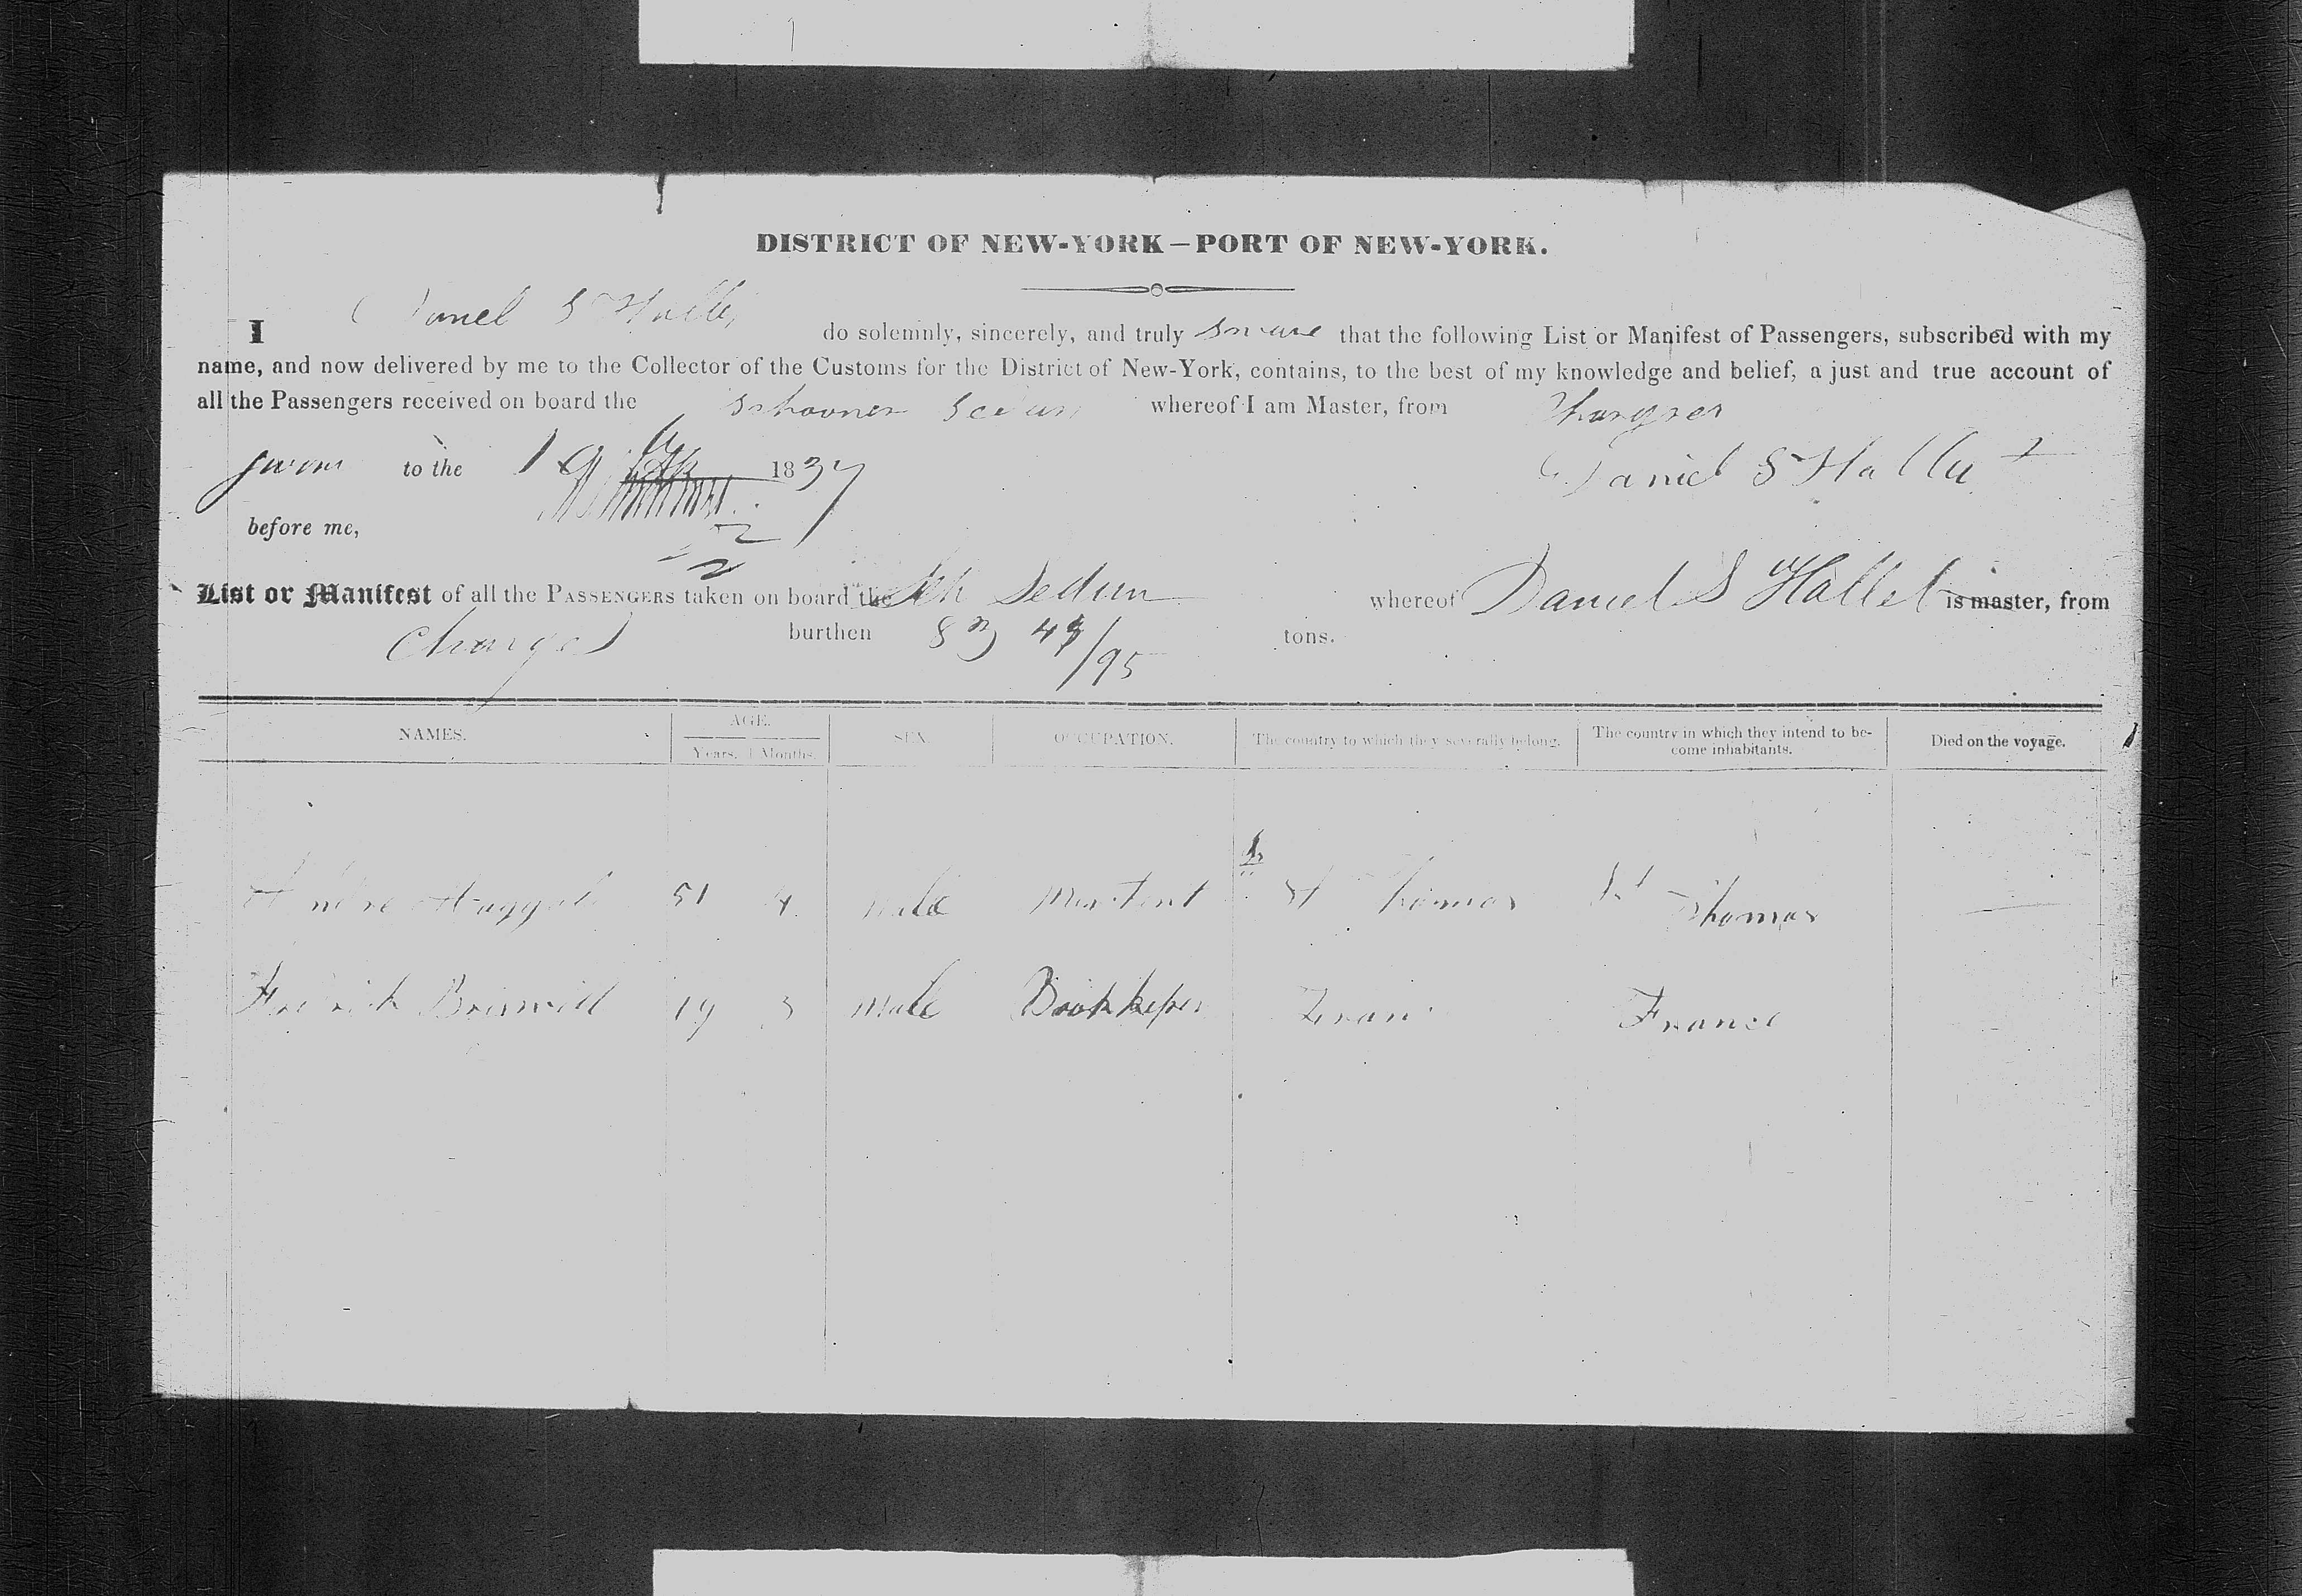 DISTRICT OF NEW-YORK—PORT OF NEW-YORK.
I Daniel S Hallet do solemnly, sincerely, and truly sware that the following List or Manifest of Passengers, subscribed with my
name, and now delivered by me to the Collector of the Customs for the District of New-York, contains, to the best of my knowledge and belief, a just and true account of
all the Passengers received on board the Schooner Sedum whereof I am Master, from
sworn to the 19 1837 Daniel S Hallet
before me,
List or Manifest of all the PASSENGERS taken on board the Sch Sedum whereof Daniel S Hallet is master, from
burthen 83 tons.
NAMES. AGE. Years. Months. SEX. OCCUPATION. The country to which they severally belong. The country in which they intend to become inhabitants. Died on the voyage.
51 4 male St Thomas St Thomas
19 male Bookkeper France